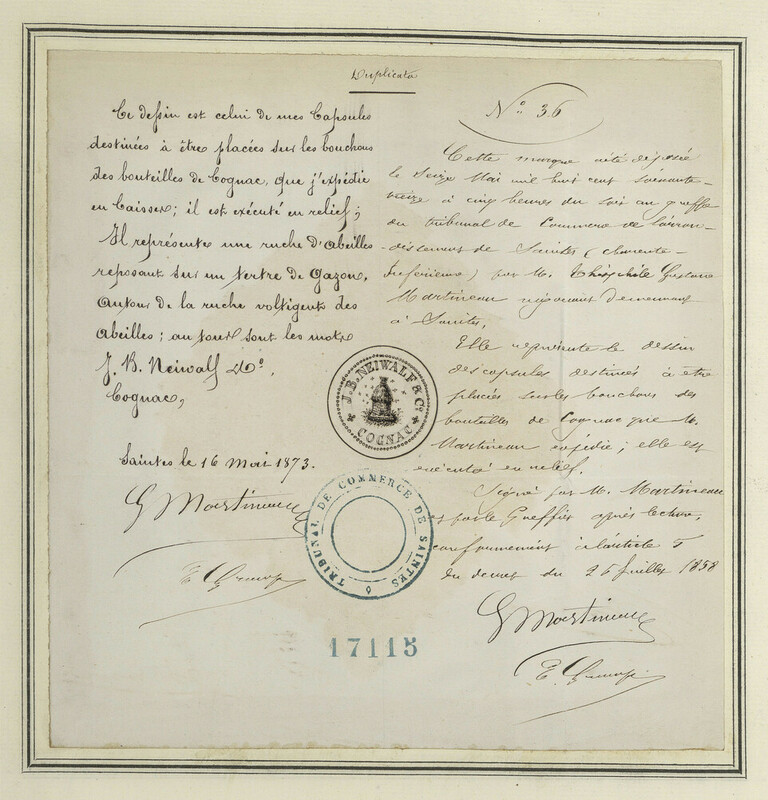 Duplicata
Ce dessin est celui de mes Capsules
destinées à être placées sur les bouchons
des bouteilles de Cognac, que j'expédie
en Caisses; il est exécuté en relief;
Il représente une ruche d'Abeilles
reposant sur un tertre de Gazon,
Autour de la ruche voltigent des
Abeilles; au tour sont les mots
J. B. Neiwalf & Co.
Cognac,
Saintes le 16 Mai 1873.
G Martineau
J. B. NEIWALF & Co.
COGNAC
TRIBUNAL DE COMMERCE DE SAINTES
17115
No 36
Cette marque a été déposée
le Seize Mai mil huit cent soixante-
treize à cinq heures du soir au greffe
du tribunal de Commerce de l'arron-
dissement de Saintes (Charente-
Inférieure) par M. Théophile Gustave
Martineau négociant demeurant
à Saintes.
Elle représente le dessin
des capsules destinées à être
placées sur les bouchons des
bouteilles de Cognac que M.
Martineau expédie; elle est
exécutée en relief.
Signé par M. Martineau
et par le Greffier après lecture,
conformément à l'article 5
du décret du 26 Juillet 1858
G Martineau